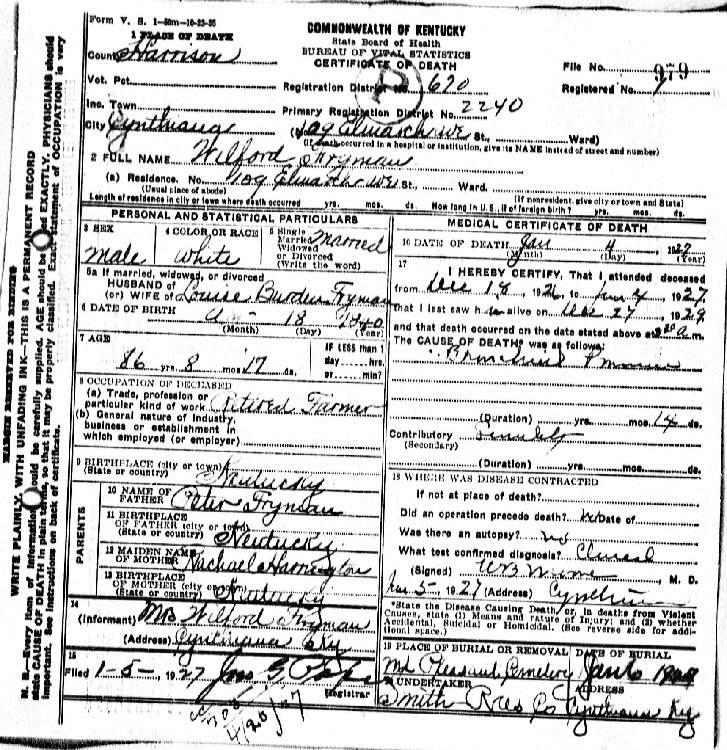 Form V. S. 1-50m-10-23-25
COMMONWEALTH OF KENTUCKY
State Board of Health
BUREAU OF VITAL STATISTICS
CERTIFICATE OF DEATH
1 PLACE OF DEATH
County Harrison
File No. 979
Vot. Pct.
Registration District No. 620
Registered No.
Inc. Town
Primary Registration District No. 2240
City Cynthiana
(No. 109 St., Ward)
(If death occurred in a hospital or institution, give its NAME instead of street and number)
2 FULL NAME Wilford Fryman
(a) Residence. No. 109 St., Ward.
(Usual place of abode)
(If nonresident, give city or town and State)
Length of residence in city or town where death occurred yrs. mos. ds. How long in U.S., if of foreign birth? yrs. mos. ds.
PERSONAL AND STATISTICAL PARTICULARS
3 SEX
male
4 COLOR OR RACE
white
5 Single
Married
Widowed
or Divorced
(Write the word)
Married
5a If married, widowed, or divorced
HUSBAND of
(or) WIFE of Louise Burden Fryman
6 DATE OF BIRTH 18 1840
(Month) (Day) (Year)
7 AGE
86 yrs. 8 mos. 17 ds.
IF LESS than 1
day hrs.
or min?
8 OCCUPATION OF DECEASED
(a) Trade, profession or
particular kind of work Retired Farmer
(b) General nature of industry,
business or establishment in
which employed (or employer)
9 BIRTHPLACE (city or town)
(State or country) Kentucky
PARENTS
10 NAME OF
FATHER Peter Fryman
11 BIRTHPLACE
OF FATHER (city or town)
(State or country) Kentucky
12 MAIDEN NAME
OF MOTHER Rachael Harrington
13 BIRTHPLACE
OF MOTHER (city or town)
(State or country) Kentucky
14
(Informant) Mrs Wilford Fryman
(Address) Cynthiana Ky
15
Filed 1-5-, 1927
Registrar
MEDICAL CERTIFICATE OF DEATH
16 DATE OF DEATH Jan 4, 1927
(Month) (Day) (Year)
17
I HEREBY CERTIFY, That I attended deceased
from Dec 18, 1926, to Jan 4, 1927,
that I last saw him alive on Dec 27, 1927,
and that death occurred on the date stated above at m.
The CAUSE OF DEATH* was as follows:
Bronchial
(Duration) yrs. mos. 14 ds.
Contributory Senility
(Secondary)
(Duration) yrs. mos. ds.
18 WHERE WAS DISEASE CONTRACTED
If not at place of death?
Did an operation precede death? No Date of
Was there an autopsy? no
What test confirmed diagnosis? Clinical
(Signed) M. D.
Jan 5-, 1927 (Address)
*State the Disease Causing Death, or, in deaths from Violent
Causes, state (1) Means and nature of Injury; and (2) whether
Accidental, Suicidal or Homicidal. (See reverse side for addi-
tional space.)
19 PLACE OF BURIAL OR REMOVAL DATE OF BURIAL
Mt Pleasant Cemetery Jan 6
20 UNDERTAKER ADDRESS
Smith Rees Co Cynthiana Ky
MARGIN RESERVED FOR BINDING
WRITE PLAINLY, WITH UNFADING INK—THIS IS A PERMANENT RECORD
N. B.—Every item of information should be carefully supplied. AGE should be stated EXACTLY. PHYSICIANS should
state CAUSE OF DEATH in plain terms, so that it may be properly classified. Exact statement of OCCUPATION is very
important. See instructions on back of certificate.